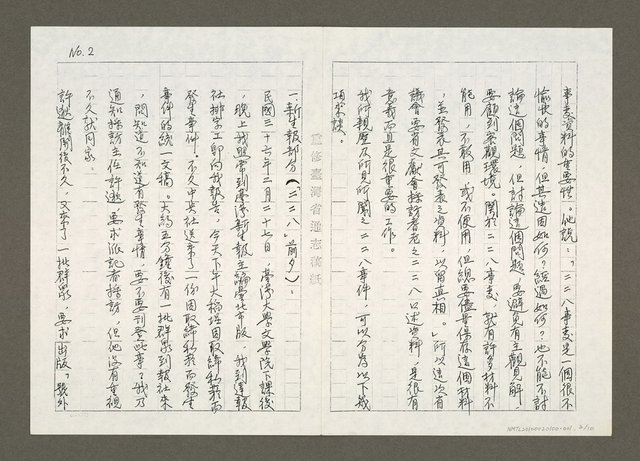 No. 2
事変資料的重要性。他說:「二二八事変是一個很不
愉快的事情,但其遠因如何?經過如何?也不能不討
論這個問題,但討論這個問題,要避免有主觀見解,
要顧到客觀環境。関於二二八事変,就有許多材料不
能用,不敢用,或不便用,但總要儘量保存這個材料
,並發表其可發表之資料,以留真相。」所以這次省
議會要省文獻會採訪耆老之二二八口述資料,是很有
意義而且是很重要的工作。
我所親歷及所見所聞之二二八事件,可以分為以下幾
項來談。
重修臺灣省通志稿紙
一、新生報部分(「二二八」前夕):
民國三十六年二月二十七日,臺灣大學文學院下課後
,晚上我照常到臺灣新生報主編臺北市版,我到達報
社排字工即向我報告,今天下午大稻埕因取締私菸而
發生事件。不久中央社送來了一份因取締私菸而發生
事件的統一文稿。大約五分鐘後有一批群眾到報社來
,問知道不知道有發生事情,要不要刊登此事?我乃
通知採訪主任許 ,要求派記者採訪,但他沒有重視
不久就回家。
許 離開後不久,又來了一批群眾,要求出版「號外
NMTL20100020100-001, 2/10